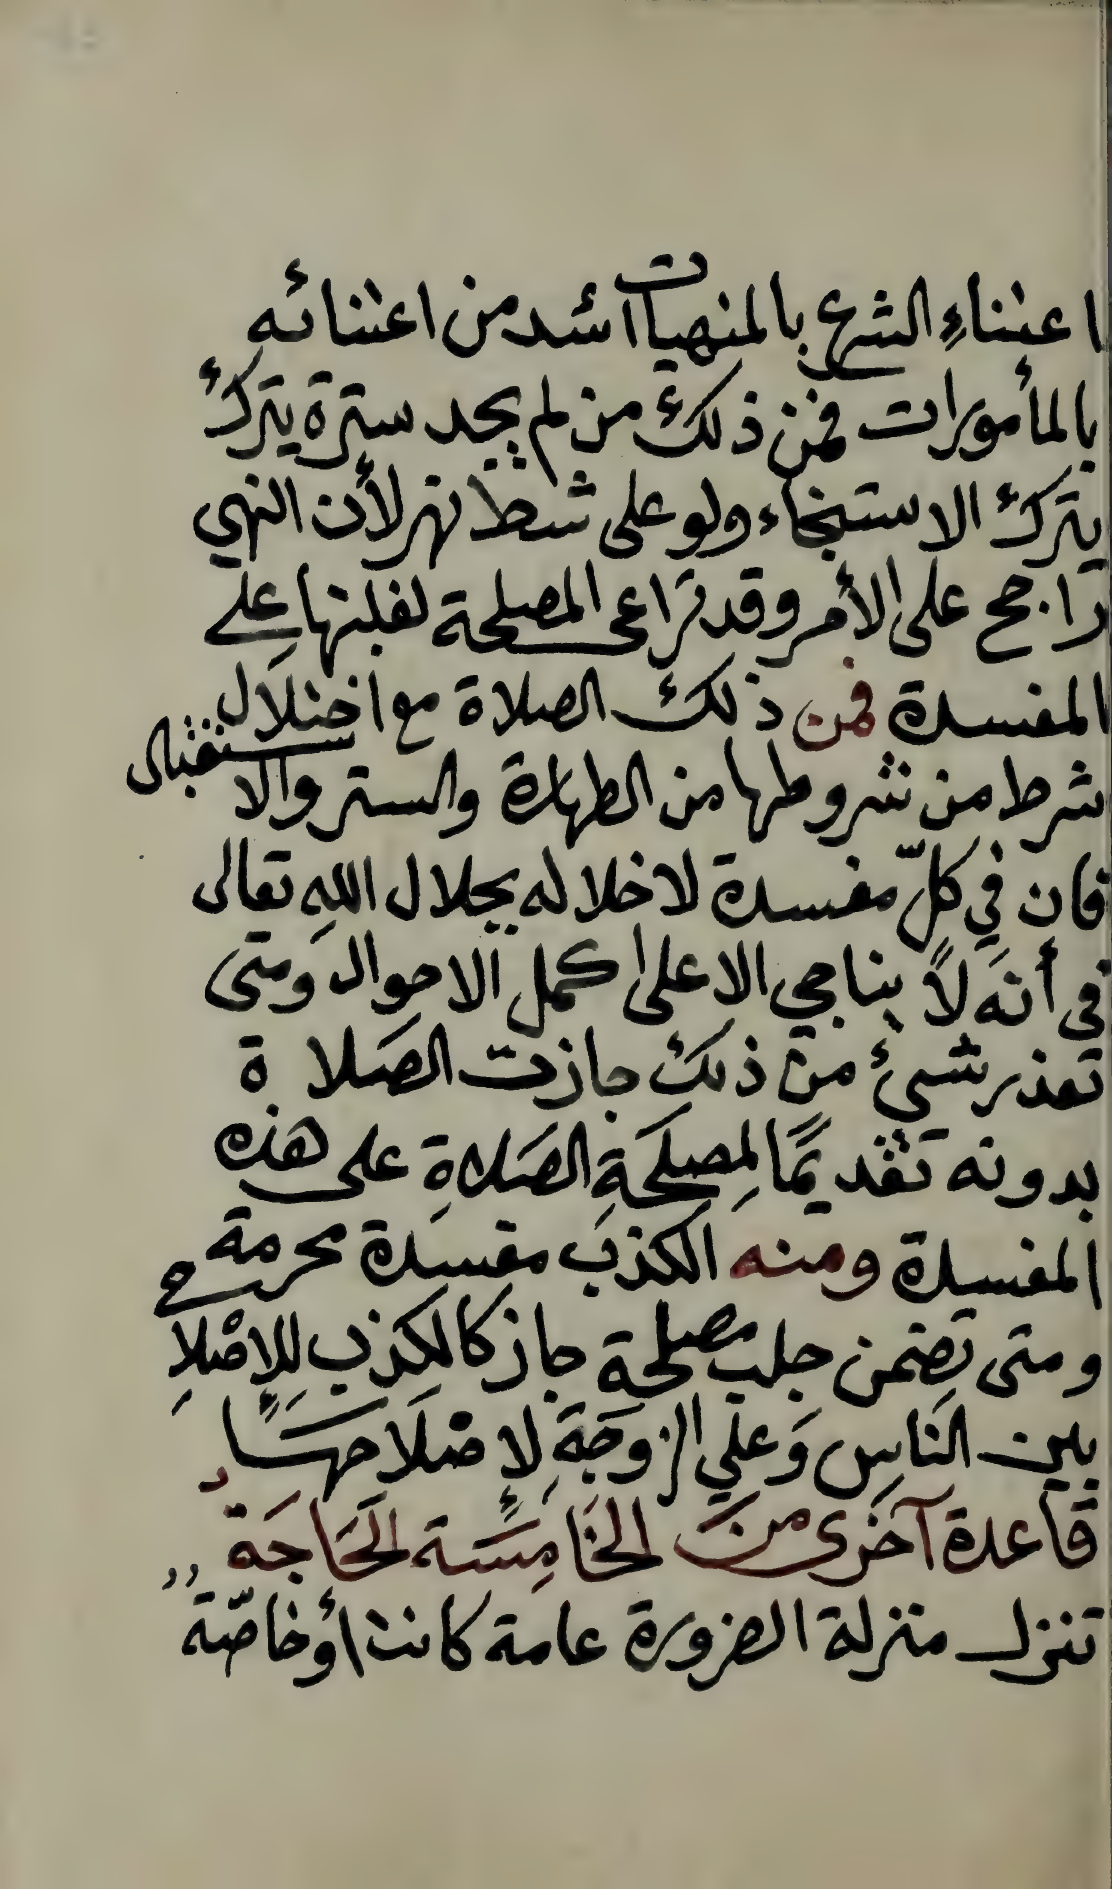 اعتناء الشرع بالمنهيات أشد من اعتنائه
بالمأمورات فمن ذلك من لم يجد سترة يترك
يترك الاستنجاء ولو على شط نهر لأن النهي
راجح على الأمر وقد تراعى المصلحة لغلبتها على
المفسدة فمن ذلك الصلاة مع اختلال
شرط من شروطها من الطهارة والستر والاستقبال
فان في كلّ مفسدة لاخلاله بجلال اللهِ تعالى
في أنَه لاَ يناجي الا على اكمل الاحوال ومتى
تعذر شيئ من ذلك جازت الصَلاة
بدونه تقديمًا لِمصلحَةِ الصَلاةِ على هذه
المفسدة ومنه الكذبَ مفسدة محرمة
ومتى تضمن جلب مصلحة جاز كالكذب لِلإصْلاحِ
بين النَاسِ وَعلي الزوجَةِ لإِصْلَاحهَا
قاعدة آخرى منَ الخَامِسَة الحَاجَة
تنزل منزلة الضرورة عامة كانت أو خاصّة